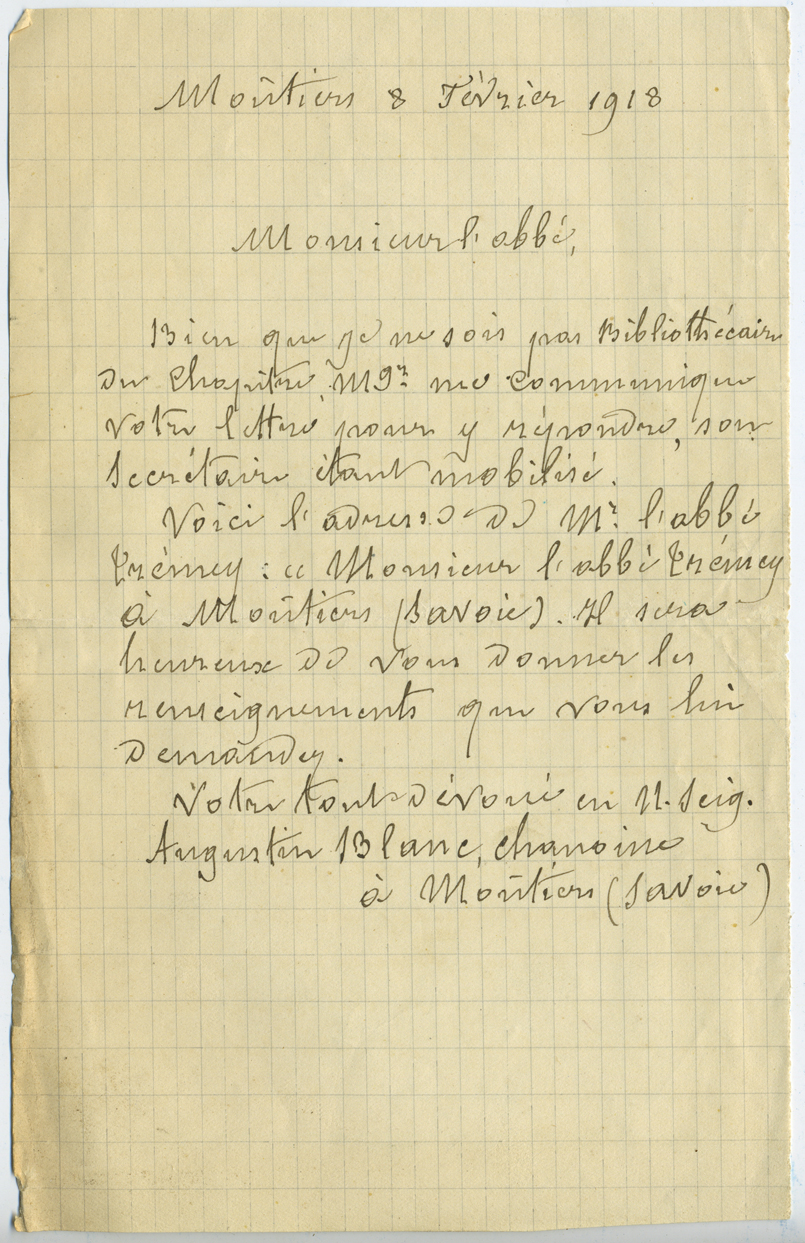 Moûtiers 8 Février 1918
Monsieur l'abbé,
Bien que je ne sois pas Bibliothécaire
du Chapitre, Mgr me communique
votre lettre pour y répondre, son
secrétaire étant mobilisé.
Voici l'adresse de Mr. l'abbé
Trémey : « Monsieur l'abbé Trémey
à Moûtiers (Savoie). Il sera
heureux de vous donner les
renseignements que vous lui
demandez.
Votre tout dévoué en N. Seig.
Augustin Blanc, chanoine
à Moûtiers (Savoie)